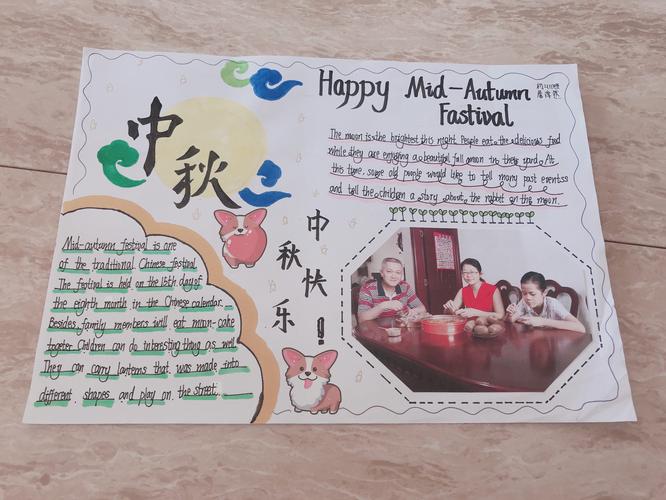 中秋
Happy Mid-Autumn
Fastival
The moon is the brightest this night. People eat the delicious food
while they are enjoying a beautiful full moon in there yard. At
this time, some old people would like to tell many past events
and tell the children a story about the rabbit on the moon.
中秋快乐!
Mid-autumn festival is one
of the traditional Chinese festival.
The festival is held on the 15th day of
the eighth month in the Chinese calendar.
Besides, family members will eat moon-cake
together. Children can do interesting thing as well.
They can carry lanterns that was made into
different shapes and play on the street.